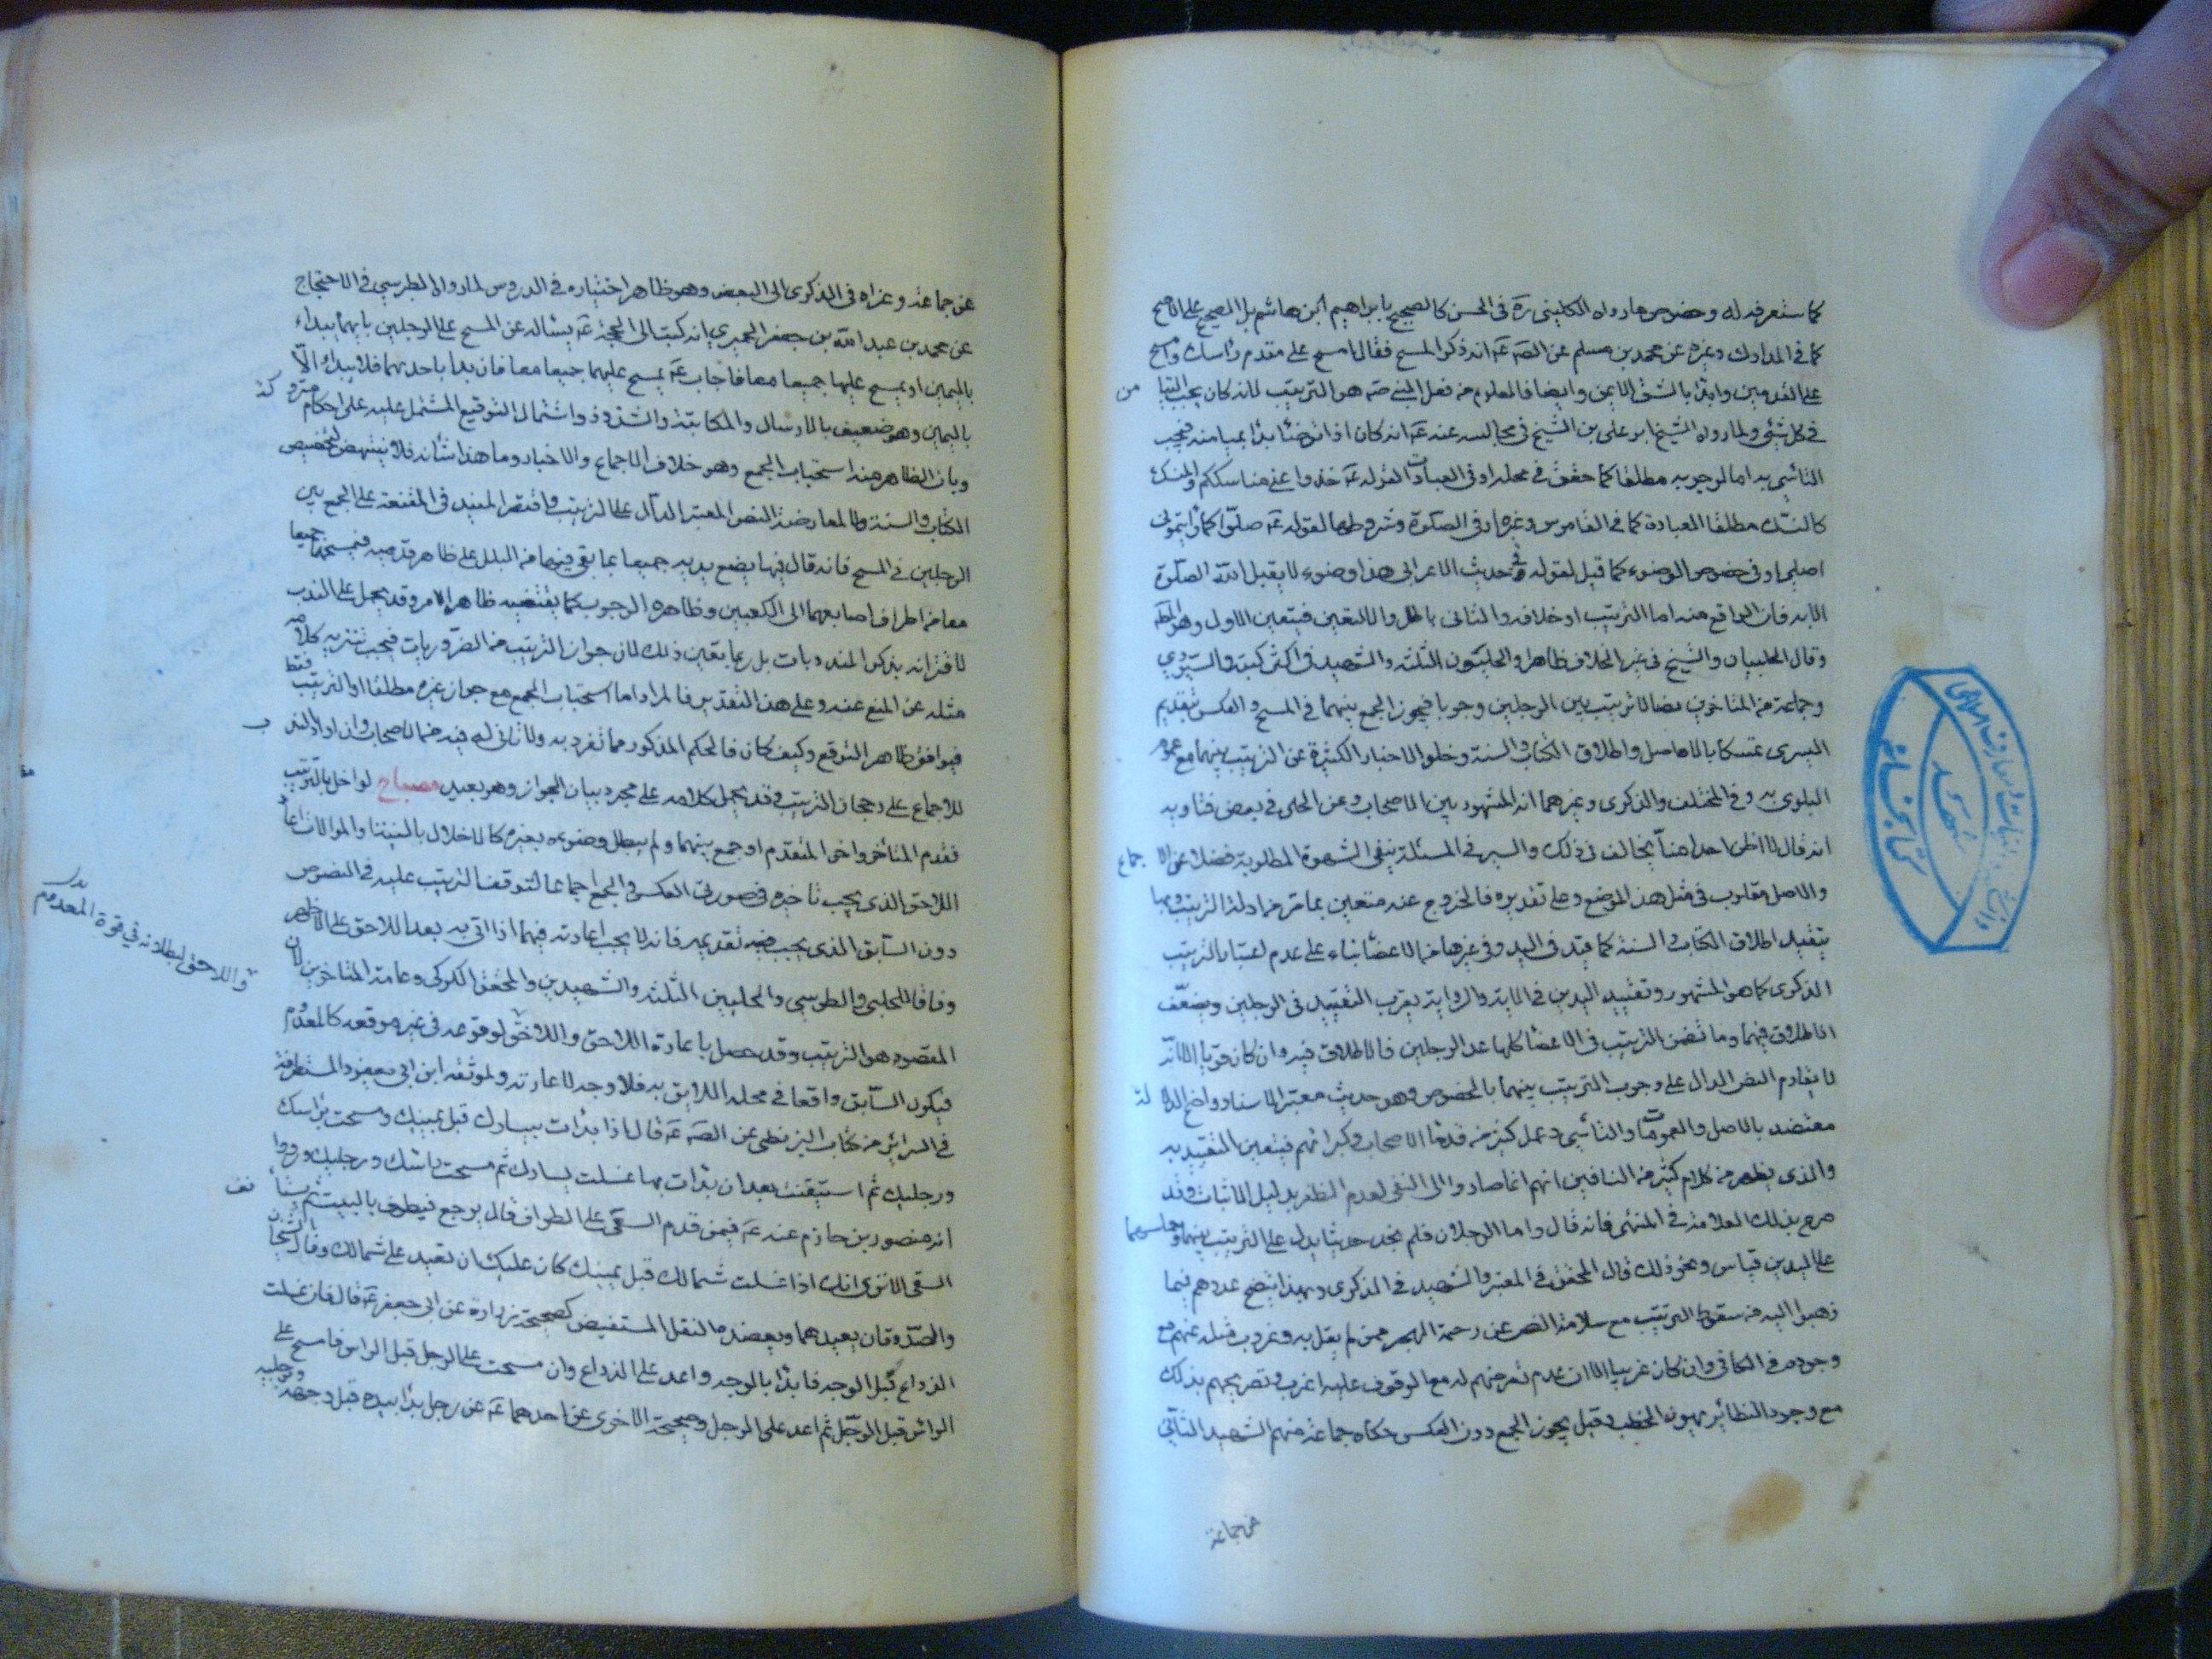 كما ستعرفه له وخصوص ما رواه الكليني ره في الحسن كالصحيح بابراهيم ابن هاشم بل الصحيح على الاصح
كما في المدارك وغيره عن محمد بن مسلم عن الصه عه انه ذكر المسح فقال امسح على مقدم راسك وامسح
على القدمين وابدأ بالشق الايمن وايضا فالمعلوم من فعل النبي صه هو الترتيب لانه كان يحب التيا من
في كل شئ ولما رواه الشيخ ابو علي بن الشيخ في مجالسه عنه عه انه كان اذا توضئا بدأ بميامنه فيجب
التاسي به اما لوجوبه مطلقا كما حقق في محله او في العبادات لقوله عه خذوا عني مناسككم والمنسك
كالنسك مطلقا العبادة كما في القاموس وغيره او في الصلوة وشروطها لقوله عه صلوا كما رايتموني
اصلي او في خصوص الوضوء كما قيل لقوله في حديث الاعرابي هذا وضوء لا يقبل الله الصلوة
الا به فان الواقع منه اما الترتيب او خلافه والثاني باطل والا لتعين فيتعين الاول وهو المط
وقال الحلبيان والشيخ في غير الخلاف ظاهرا والحليون الثلثة والشهيد في اكثر كتبه والسيوري
وجماعة من المتاخرين بعدم الترتيب بين الرجلين وجوبا فيجوز الجمع بينهما في المسح والعكس بتقديم
اليسرى تمسكا بالاصل واطلاق الكتاب والسنة وخلو الاخبار الكثيرة عن الترتيب بينهما مع عموم
البلوى به وفي المختلف والذكرى وغيرهما انه المشهور بين الاصحاب وعن الحلي في بعض فتاويه
انه قال لا اظن احدا منا يخالف في ذلك والسبر في المسئلة ينفي الشهرة المطلوبة فضلا عن الا جماع
والاصل مقلوب في مثل هذا الموضع وعلى تقديره فالخروج عنه متعين بما مر من ادلة الترتيب وبها
يتقيد اطلاق الكتاب والسنة كما قيد في اليد وفي غيرها من الاعضا بناء على عدم اعتبار الترتيب
الذكرى كما هو المشهور وتقييد اليدين في الاية والرواية يقرب التقييد في الرجلين ويضعف
الاطلاق فيهما وما تضمن الترتيب في الاعضا كلها عدا الرجلين فالاطلاق فيه وان كان قويا الا انه
لا يقاوم النص الدال على وجوب الترتيب بينهما بالخصوص وهو حديث معتبر الاسناد واضح الدلا لة
معتضد بالاصل والعمومات والتاسي وعمل كثير من قدماء الاصحاب وكبرائهم فيتعين التقييد به
والذي يظهر من كلام كثير من النافين انهم انما صاروا الى النفي لعدم الظفر بدليل الاثبات وقد
صرح بذلك العلامة في المنتهى فانه قال واما الرجلان فلم نجد حديثا يدل على الترتيب بينهما وحملهما
على اليدين قياس ونحو ذلك قال المحقق في المعتبر والشهيد في الذكرى وبهذا يتضح عذرهم فيما
ذهبوا اليه من سقوط الترتيب مع سلامة النص عن رحمة الهجر ممن لم يقل به وغروب مثله عنهم مع
وجوده في الكافي وان كان غريبا الا ان عدم تعرضهم له مع الوقوف عليه اغرب وتصريحهم بذلك
مع وجود النظائر يهون الخطب وقيل يجوز الجمع دون العكس حكاه جماعة منهم الشهيد الثاني
عن جماعة
عن جماعة وعزاه في الذكرى الى البعض وهو ظاهر اختياره في الدروس لما رواه الطبرسي في الاحتجاج
عن محمد بن عبد الله بن جعفر الحميري انه كتب الى الحجة عه يسأله عن المسح على الرجلين بايهما يبداء
باليمين او يمسح عليهما جميعا معا فاجاب عه يمسح عليهما جميعا معا فان بدأ باحدهما فلا يبداء الا
باليمين وهو ضعيف بالارسال والمكاتبة والشذوذ واشتمال التوقيع المشتمل عليه على احكام متروكة
وبان الظاهر منه استحباب الجمع وهو خلاف الاجماع والاخبار وما هذا شأنه فلا ينتهض لتخصيص
الكتاب والسنة ولا لمعارضة النص المعتبر الدال على الترتيب واقتصر المفيد في المقنعة على الجمع بين
الرجلين في المسح فانه قال فيها يضع يديه جميعا بما بقي فيهما من البلل على ظاهر قدميه فيمسحهما جميعا
معا من اطراف اصابعهما الى الكعبين وظاهره الوجوب كما يقتضيه ظاهر الامر وقد يحمل على الندب
لاقترانه بذكر المندوبات بل ربما يقين ذلك لان جواز الترتيب من الضروريات فيجب تنزيه كلامه
مثله عن المنع عنه وعلى هذا التقدير فالمراد اما استحباب الجمع مع جواز غيره مطلقا او الترتيب فقط
فيوافق ظاهر التوقيع وكيف كان فالحكم المذكور مما تفرد به ولا ثاني له فيه من الاصحاب وان اراد الند ب
للاجماع على رجحان الترتيب وقد يحمل كلامه على مجرد بيان الجواز وهو بعيد مصباح لو اخل بالترتيب
فقدم المتأخر واخر المتقدم او جمع بينهما ولم يبطل وضوءه بغيره كالاخلال بالنية والموالاة اعاد
اللاحق الذي يجب تأخيره في صورتي العكس والجمع اجماعا لتوقف الترتيب عليه في النصوص
دون السابق الذي يجب فيه تقديمه فانه لا يجب اعادته فيهما اذا اتى به بعد اللاحق على الاظهر
وفاقا للحلبي والطوسي والحليين الثلثة والشهيدين والمحقق الكركي وعامة المتاخرين لان
المقصود هو الترتيب وقد حصل باعادة اللاحق واللاحق لوقوعه في غير موقعه كالمعدوم
فيكون السابق واقعا في محله اللايق به فلا وجه لاعادته ولموثقة ابن ابي يعفور المستطرفة
في السرائر من كتاب البزنطي عن الصه عه قال اذا بدأت بيسارك قبل يمينك ومسحت براسك
ورجليك ثم استيقنت بعد ان بدأت بها غسلت يسارك ثم مسحت راسك ورجليك وروا
انه منصور بن حازم عنه عه فيمن قدم السعي على الطواف قال يرجع فيطوف بالبيت ثم يستأ نف
السعي الا ترى انك اذا غسلت شمالك قبل يمينك كان عليك ان تعيد على شمالك وقال الشيخان
والصدوقان يعيدهما ويعضده النقل المستفيض كصحيحة زرارة عن ابي جعفر عه قال فان غسلت
الذراع قبل الوجه فابدأ بالوجه واعد على الذراع وان مسحت على الرجل قبل الراس فامسح على
الراس قبل الرجل ثم اعد على الرجل وصحيحة الاخرى عن احدهما عه عن رجل بدأ بيده قبل وجهه ورجليه
واللاحق لبطلانه في قوة المعدوم